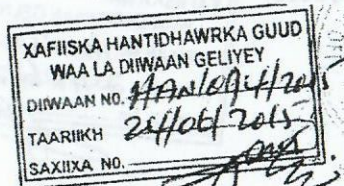 XAFIISKA HANTIDHAWRKA GUUD
WAA LA DIIWAAN GELIYEY
DIIWAAN NO.
TAARIIKH 24/06/2015
SAXIIXA NO.